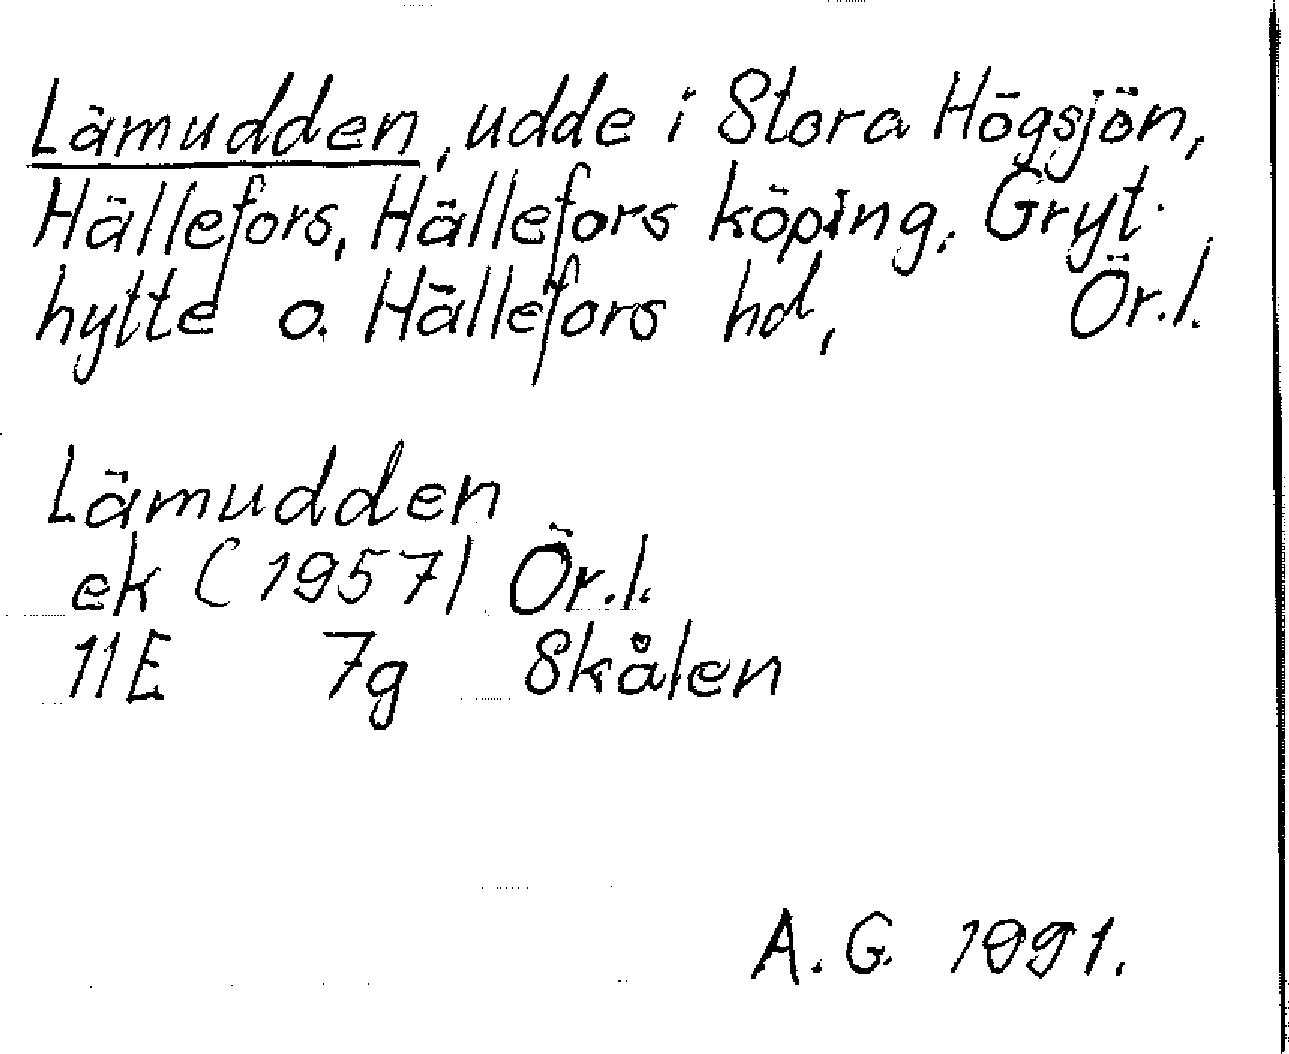 Lämudden, udde i Stora Högsjön,
Hällefors, Hällefors köping, Gryt-
hytte o. Hällefors hd, Ör.l.
Lämudden
ek (1957) Ör.l.
11E 7g Skålen
A.G. 1991.